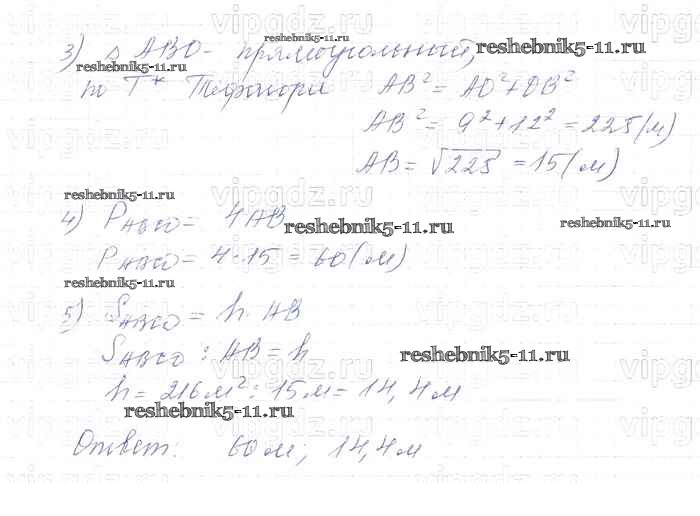 reshebnik5-11.ru
3) Δ ABO - прямоугольный, reshebnik5-11.ru
reshebnik5-11.ru
по Т* Пифагора AB² = AO² + OB²
AB² = 9² + 12² = 225 (м)
AB = √225 = 15 (м)
reshebnik5-11.ru
4) P ABCD = 4AB
reshebnik5-11.ru reshebnik5-11.ru
P ABCD = 4 · 15 = 60 (м)
reshebnik5-11.ru
5) S ABCD = h · AB
S ABCD : AB = h
reshebnik5-11.ru
h = 216 м² : 15 м = 14,4 м
reshebnik5-11.ru
Ответ: 60 м; 14,4 м